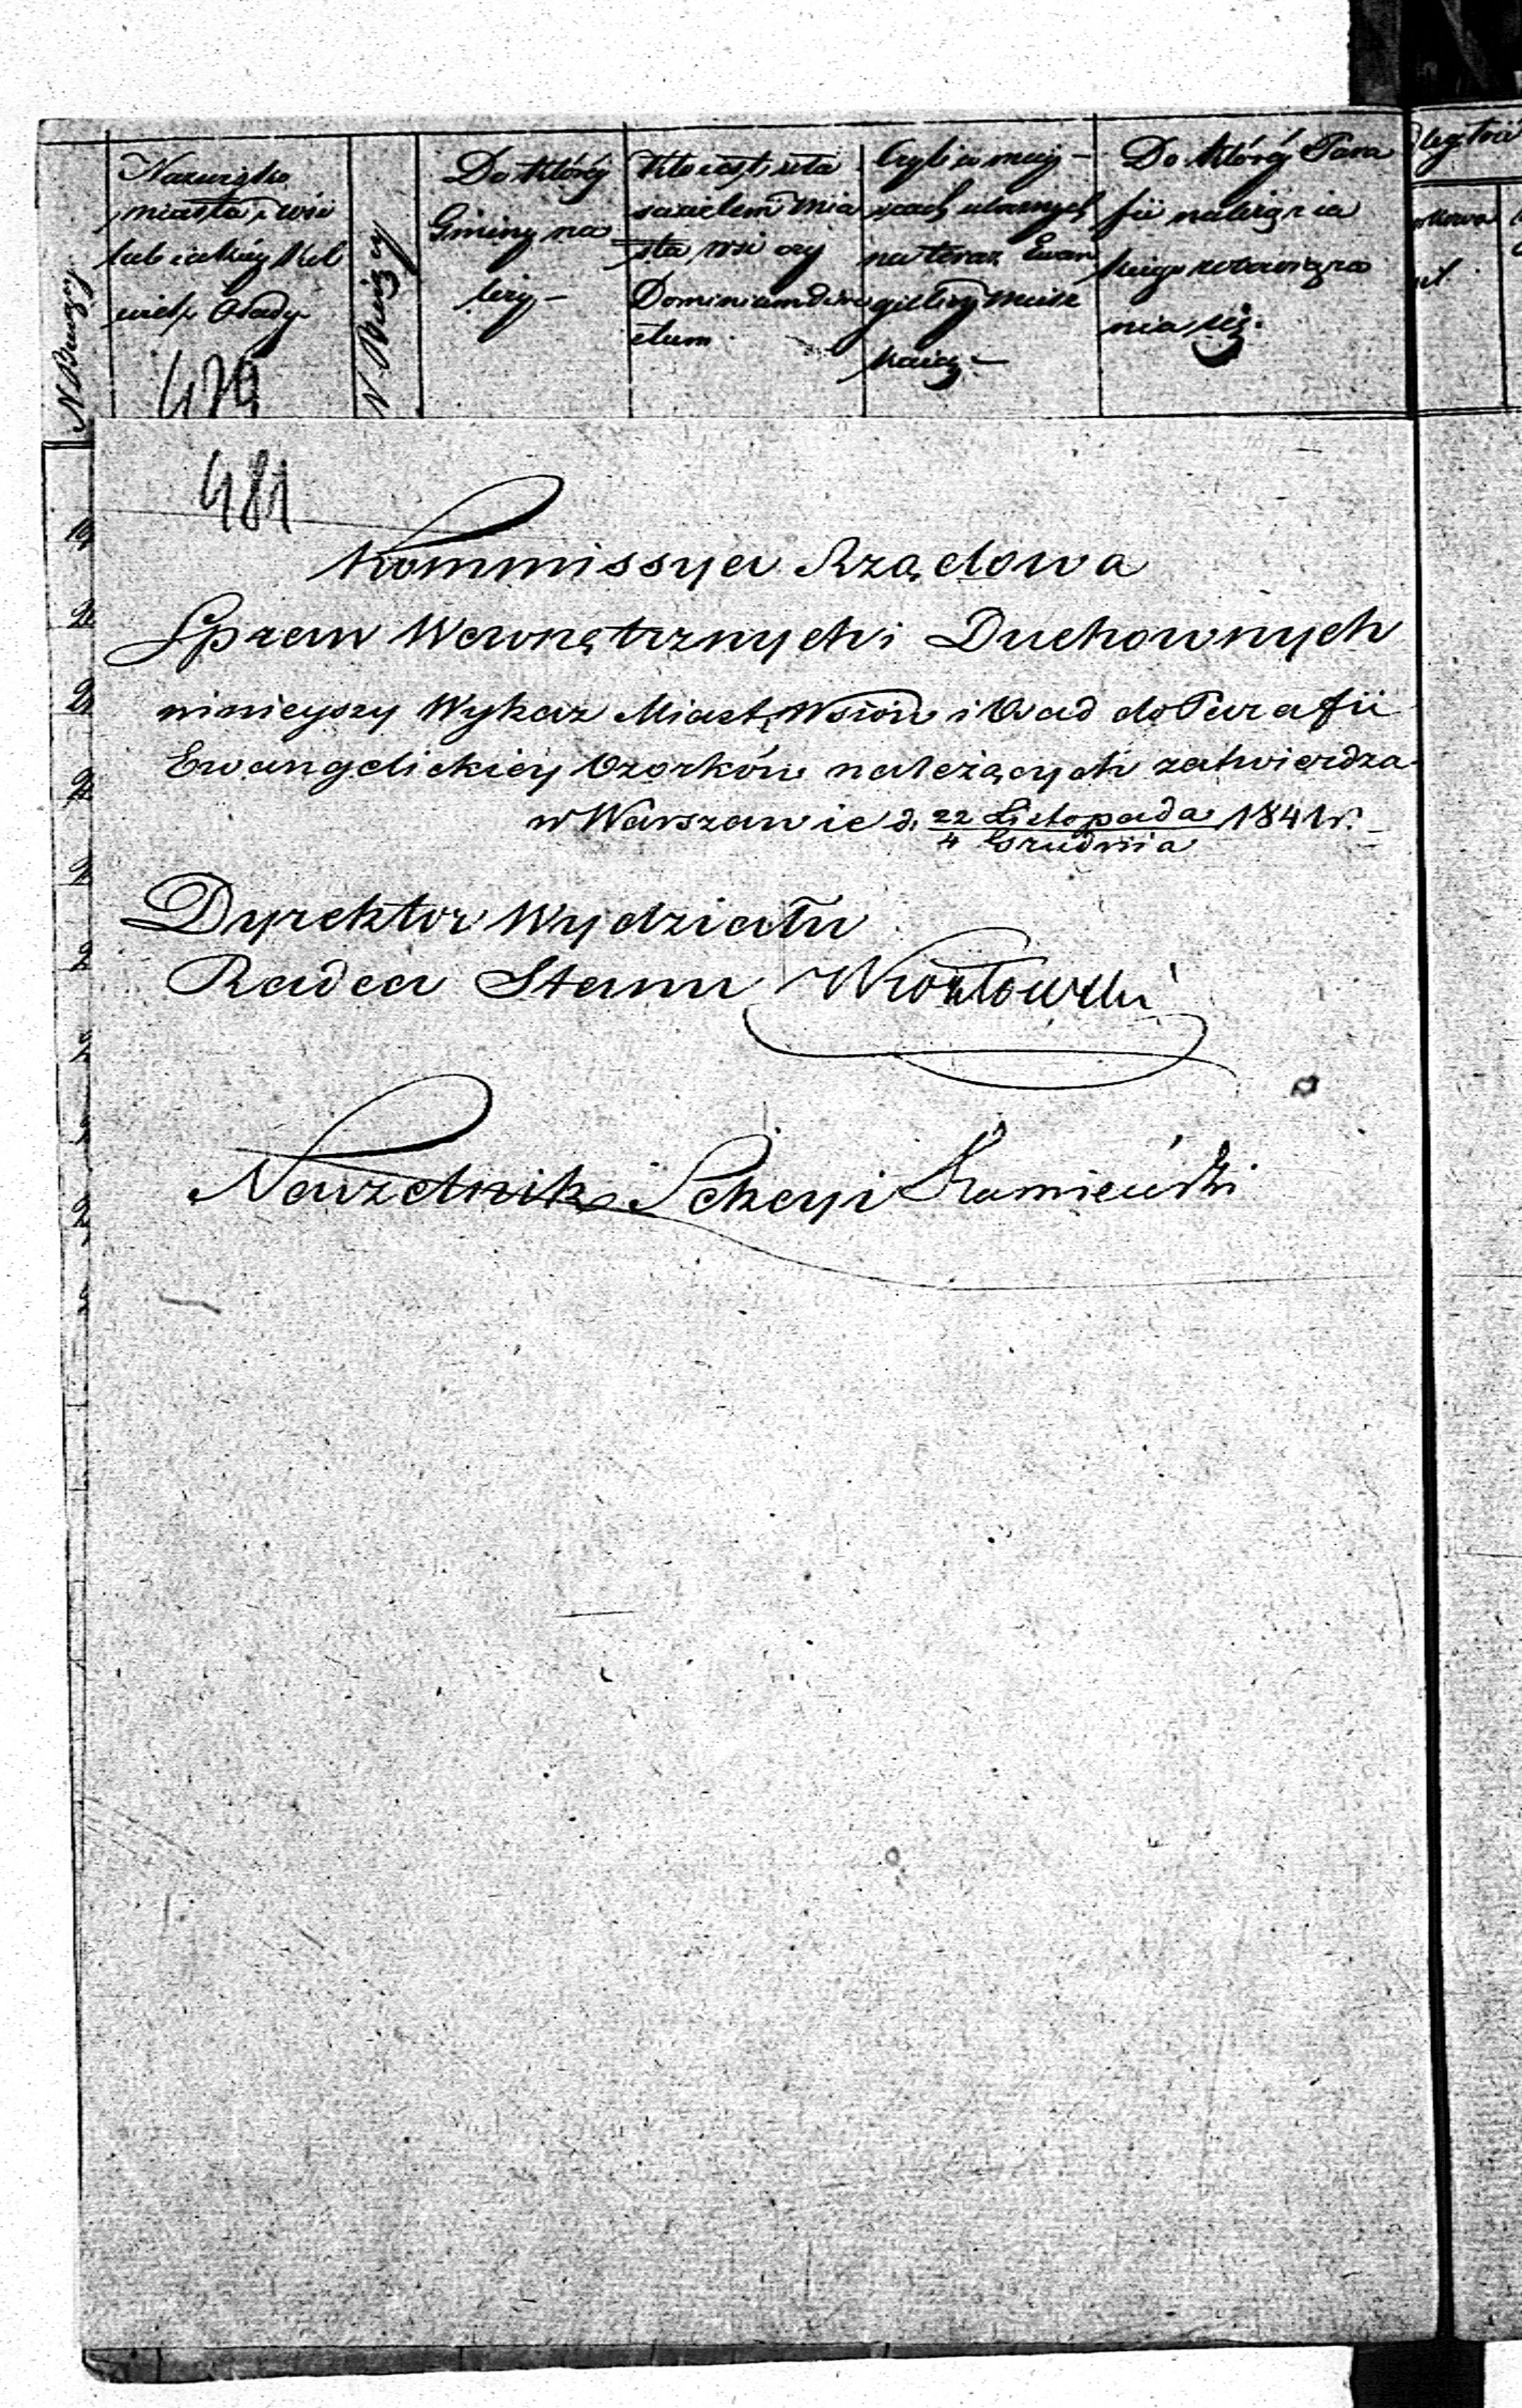 N. Bieżący
Nazwisko
miasta, wsi
lub iakiéy kol
wiek Osady
479
N. Bieżący
Do któréy
Gminy na
leży –
Kto iest wła
ścicielem mia
sta, wsi czy
Dominium dire
ctum
Czyli w miey –
scach
na teraz Ewan
gelicy miesz
kaią –
Do któréy Para
fii należenia
nia się.
481
Kommissya Rządowa
Spraw Wewnętrznych i Duchownych
ninieyszy Wykaz Miast, Wsiów i Osad do Parafii
Ewangelickiey Ozorków należących zatwierdza
w Warszawie d. 22 Listopada 1841 r.
4 Grudnia
Dyrektor Wydziału
Radca Stanu
Naczelnik Sekcyi Kamieński